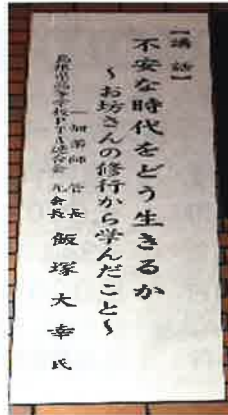 【講話】
不安な時代をどう生きるか
～お坊さんの修行から学んだこと～
一畑薬師 管長
島根県高等学校PTA連合会 元会長 飯塚大幸氏